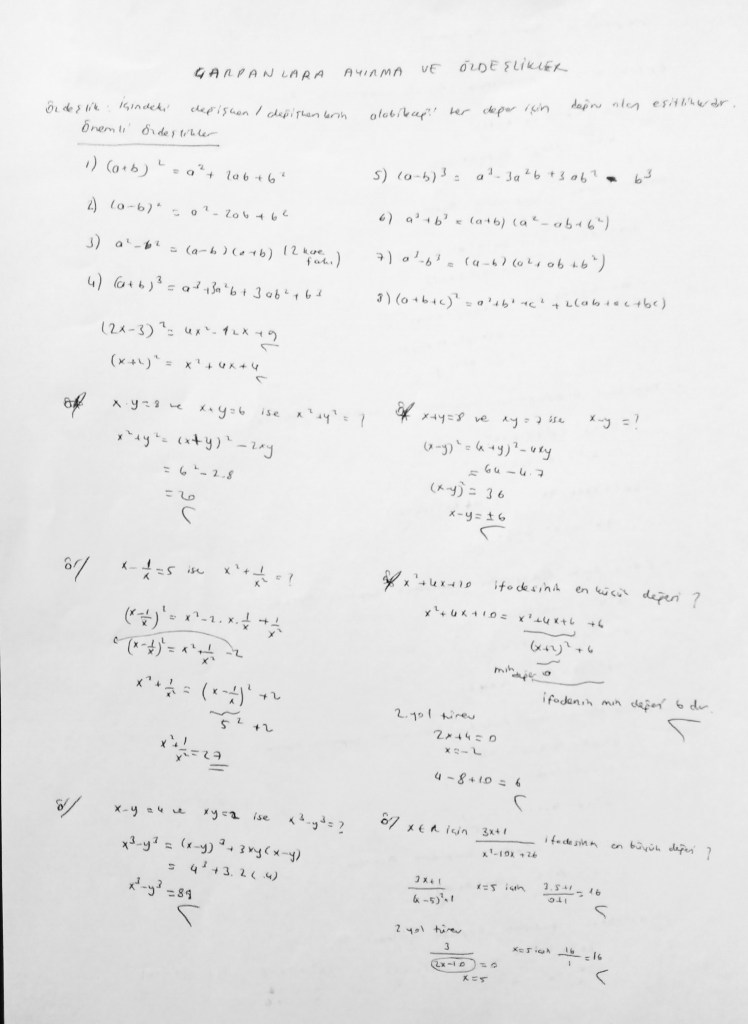 ÇARPANLARA AYIRMA VE ÖZDEŞLİKLER
Özdeşlik: İçindeki değişken / değişkenlerin alabileceği her değer için doğru olan eşitliklerdir.
Önemli Özdeşlikler
1) (a+b)² = a² + 2ab + b²
2) (a-b)² = a² - 2ab + b²
3) a² - b² = (a-b)(a+b) (2 kare farkı)
4) (a+b)³ = a³ + 3a²b + 3ab² + b³
5) (a-b)³ = a³ - 3a²b + 3ab² - b³
6) a³ + b³ = (a+b)(a² - ab + b²)
7) a³ - b³ = (a-b)(a² + ab + b²)
8) (a+b+c)² = a² + b² + c² + 2(ab+ac+bc)
(2x-3)² = 4x² - 12x + 9
(x+2)² = x² + 4x + 4
x.y=8 ve x+y=6 ise x²+y² = ?
x²+y² = (x+y)² - 2xy
= 6² - 2.8
= 20
x+y=8 ve xy=7 ise x-y = ?
(x-y)² = (x+y)² - 4xy
= 64 - 4.7
(x-y)² = 36
x-y = ±6
ör/ x - 1/x = 5 ise x² + 1/x² = ?
(x - 1/x)² = x² - 2.x.1/x + 1/x²
(x - 1/x)² = x² + 1/x² - 2
x² + 1/x² = (x - 1/x)² + 2
5² + 2
x² + 1/x² = 27
x²+4x+10 ifadesinin en küçük değeri ?
x²+4x+10 = x²+4x+4 +6
(x+2)² + 6
min değer 0
ifadenin min değeri 6 dır.
2.yol türev
2x+4=0
x=-2
4-8+10 = 6
ör/ x-y=4 ve xy=2 ise x³-y³ = ?
x³-y³ = (x-y)³ + 3xy(x-y)
= 4³ + 3.2(.4)
x³-y³ = 89
ör/ x∈R için 3x+1 / x²-10x+26 ifadesinin en büyük değeri ?
3x+1 / (x-5)²+1 x=5 için 3.5+1 / 0+1 = 16
2 yol türev
3 / 2x-10 = 0 x=5 için 16/1 = 16
x=5